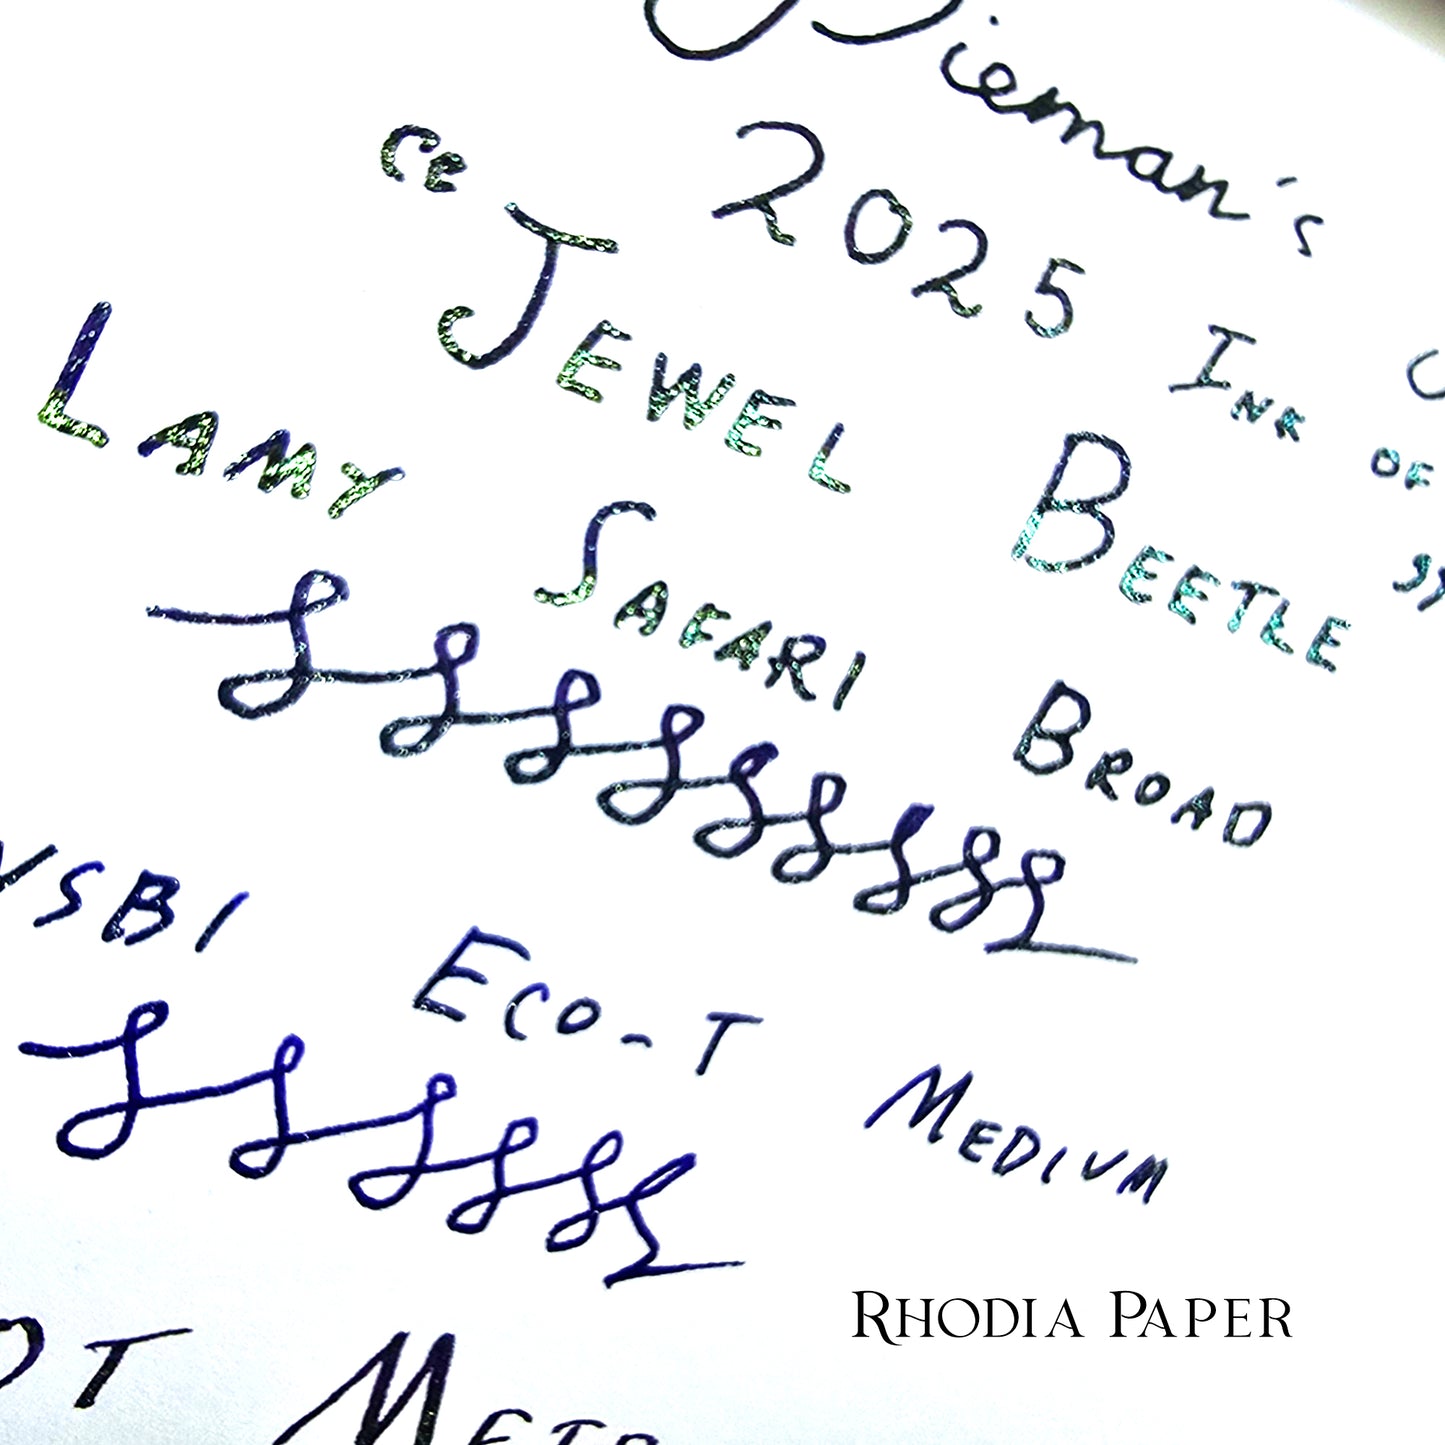 ieman's
2025 INK OF
"JEWEL BEETLE
LAMY SAFARI BROAD
VSBI ECO-T MEDIUM
OT
RHODIA PAPER